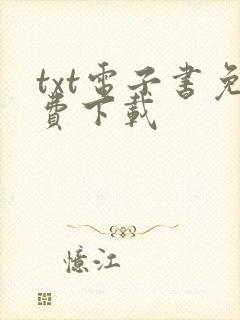 txt電子書免
費下載
憶江